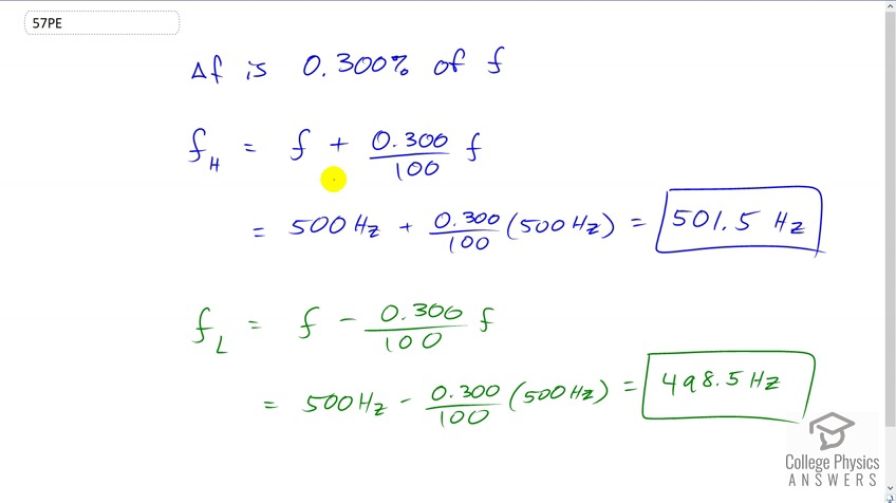 57PE
Δf is 0.300% of f
f_H = f + 0.300/100 f
= 500 Hz + 0.300/100 (500 Hz) = 501.5 Hz
f_L = f - 0.300/100 f
= 500 Hz - 0.300/100 (500 Hz) = 498.5 Hz
College Physics
ANSWERS